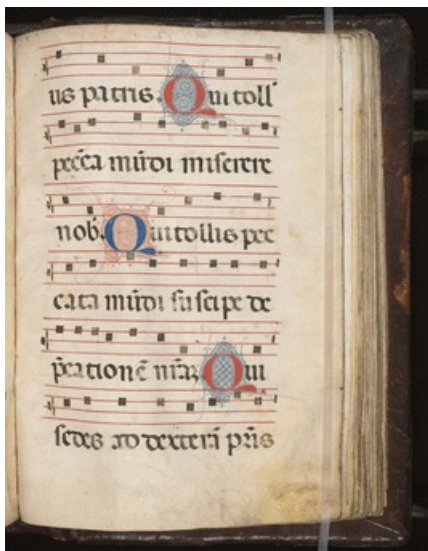 us patris. Qui toll
pecc̄a mūdi miserere
nob. Qui tollis pec
cata mūdi suscipe de
p̄cationē nr̄aȝ Qui
sedes ad dexterā pr̄is